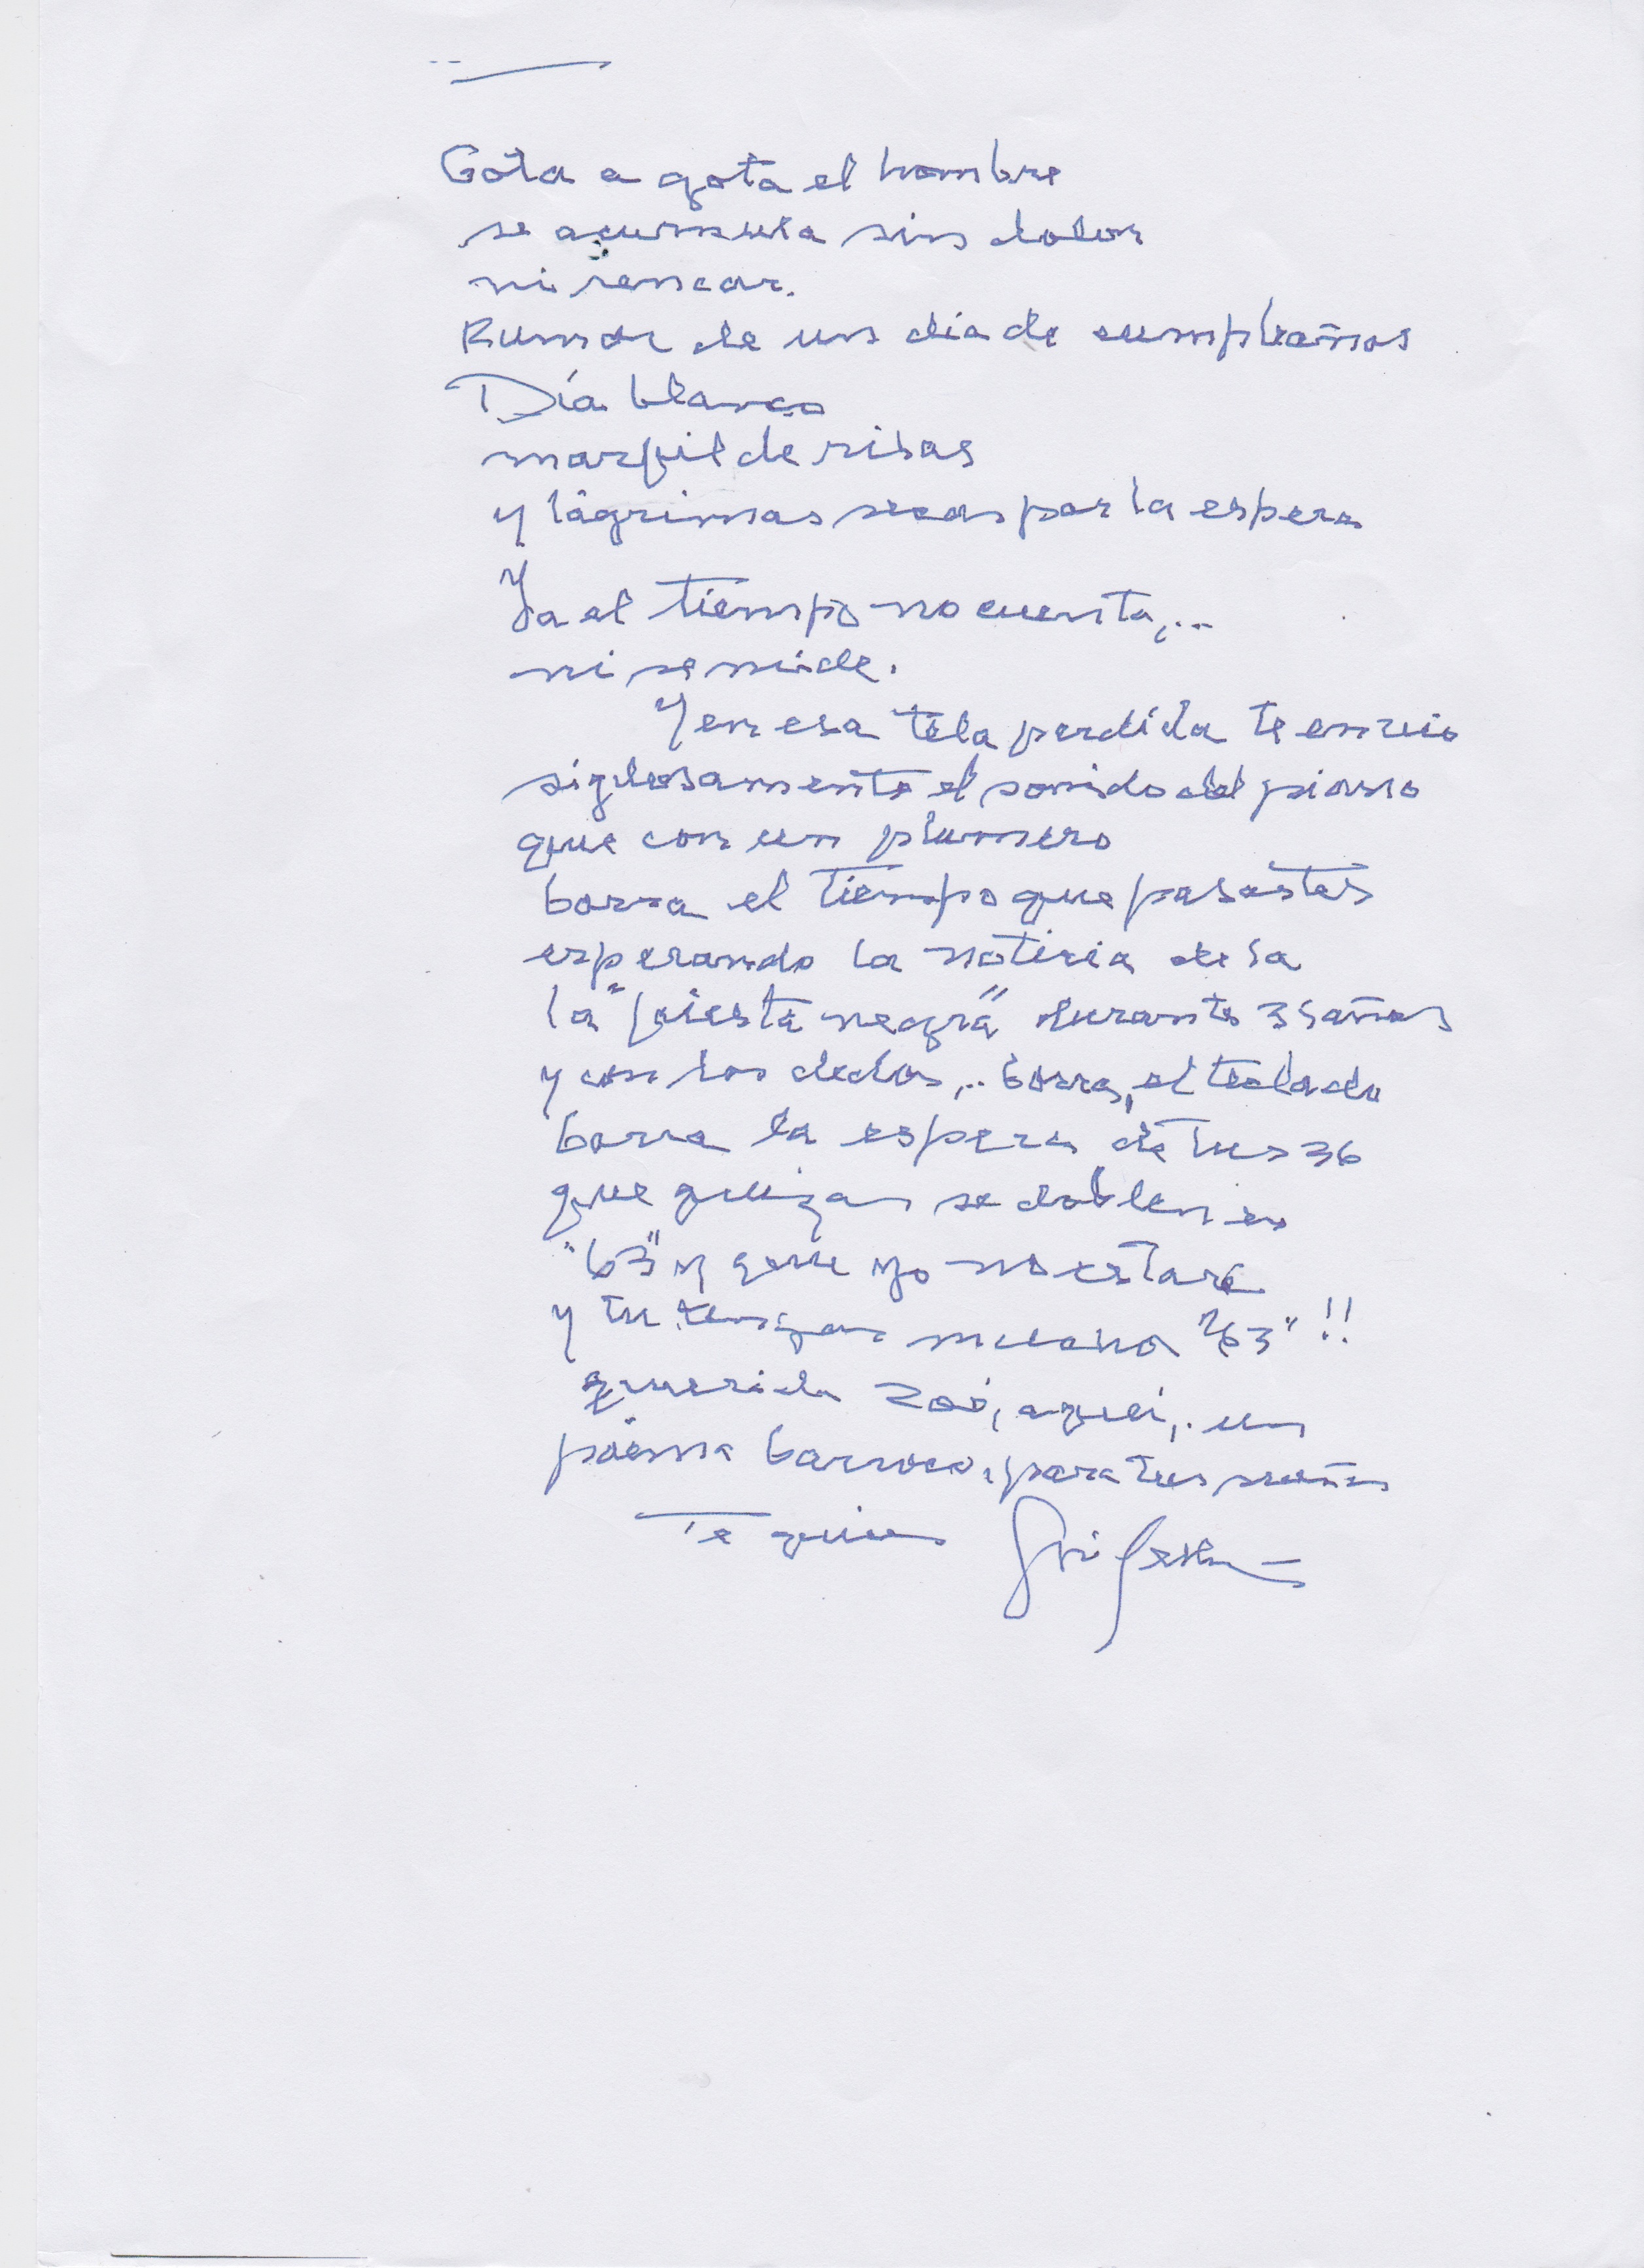 Gota a gota el hombre
se acumula sin dolor
ni rencor.
Rumor de un día de cumpleaños
Día blanco
marfil de risas
y lágrimas secas por la espera
Ya el tiempo no cuenta,..
ni se mide.
Y en esa tela perdida te envio
sigilosamente el sonido del piano
que con un plumero
borra el tiempo que pasastes
esperando la noticia de la
la "fiesta negra" durante 35 años
y con los dedos,.. borra, el teclado
borra la espera de tus 36
que quizas se doblen en
"63" y que yo no estaré
y tu tengas mucho "63" !!
querida Zoé, aquí,. un
poema barroco, para tus sueños
Te quiero